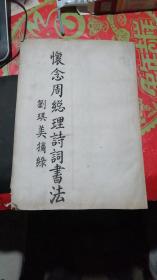 懷念周総理詩詞書法
劉琪美摘錄